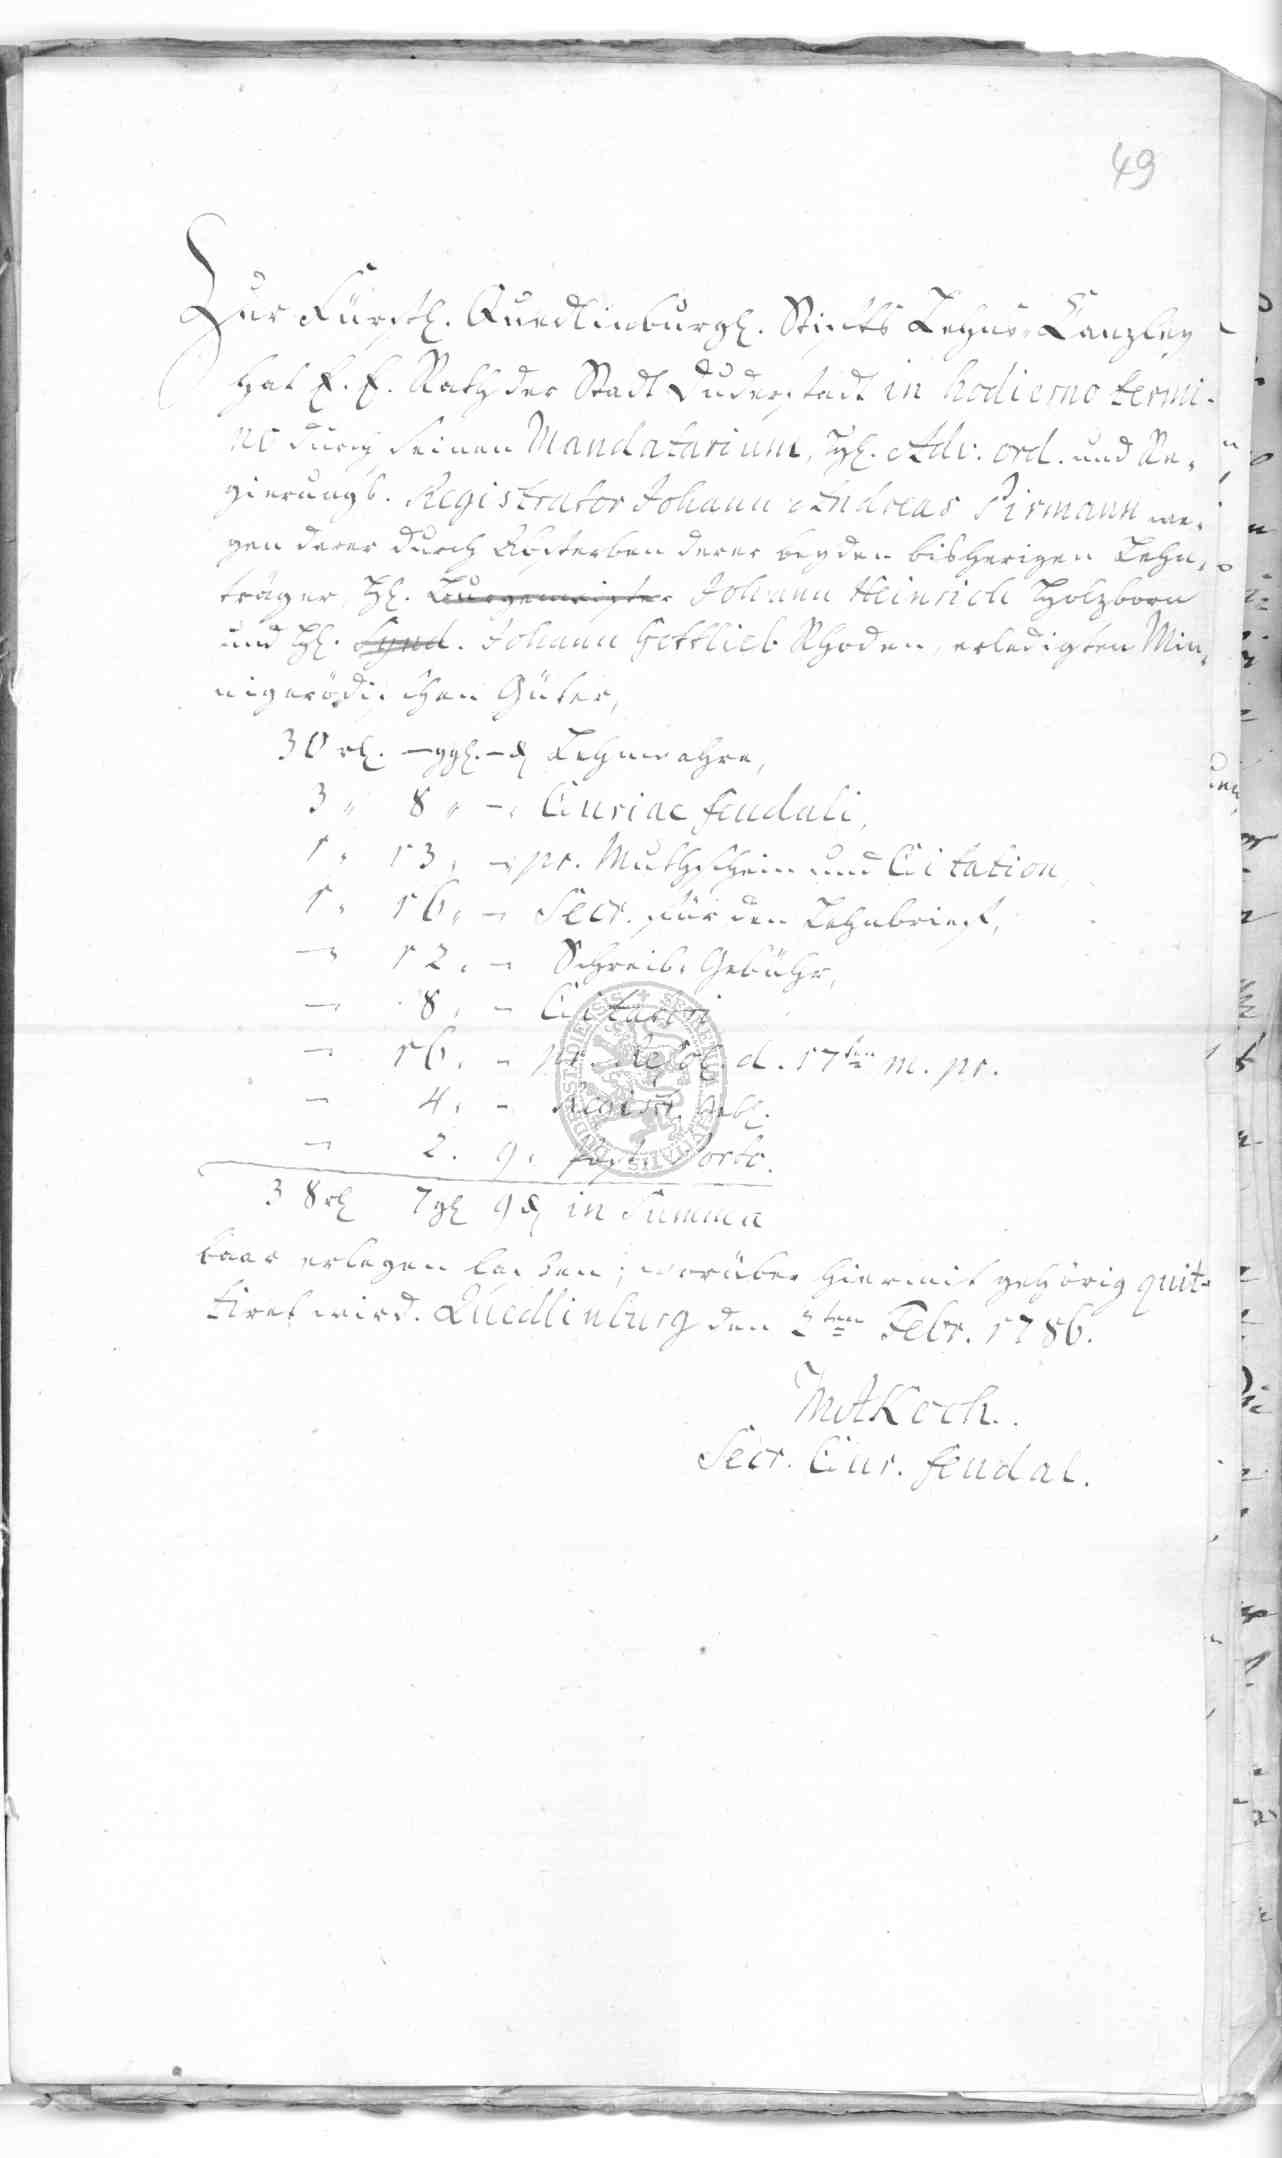 49
Zur Fürstl. Quedlinburgl. Stifts Lehns-Canzley
hat E. E. Rath der Stadt Duderstadt in hodierno termi-
no durch seinen Mandatarium, Hl. Adv. ord. und Re-
gierungs. Registrator Johann Andreas Pirmann we-
gen derer durch Absterben derer beyden bisherigen Lehn-
träger, Hl. Burgemeister Johann Heinrich Holzborn
und Hl. Synd. Johann Gottlieb Rhoden, erledigten Min-
nigerödischen Güter,
30 rl. – ggl. – ₰ Lehnwahre,
3 „ 8 „ – Curiae feudali,
1 „ 13 „ – pr. Muthschein und Citation,
1 „ 16 „ – Secr. für den Lehnbrief,
– 12 „ – Schreib-Gebühr,
– 8 „ –
– 16 „ – pr. Resol. d. 17ten m. pr.
– 4 „ – Registr. Gebl.
– 2. 9. Post Porto.
38 rl 7 gl 9 ₰ in Summa
baar erlegen laßen; worüber hiermit gehörig quit-
tiret wird. Quedlinburg den 2ten Febr. 1786.
MAKoch.
Secr. Cur. feudal.
SIGILLUM CIVITATIS DUDERSTADIENSIS